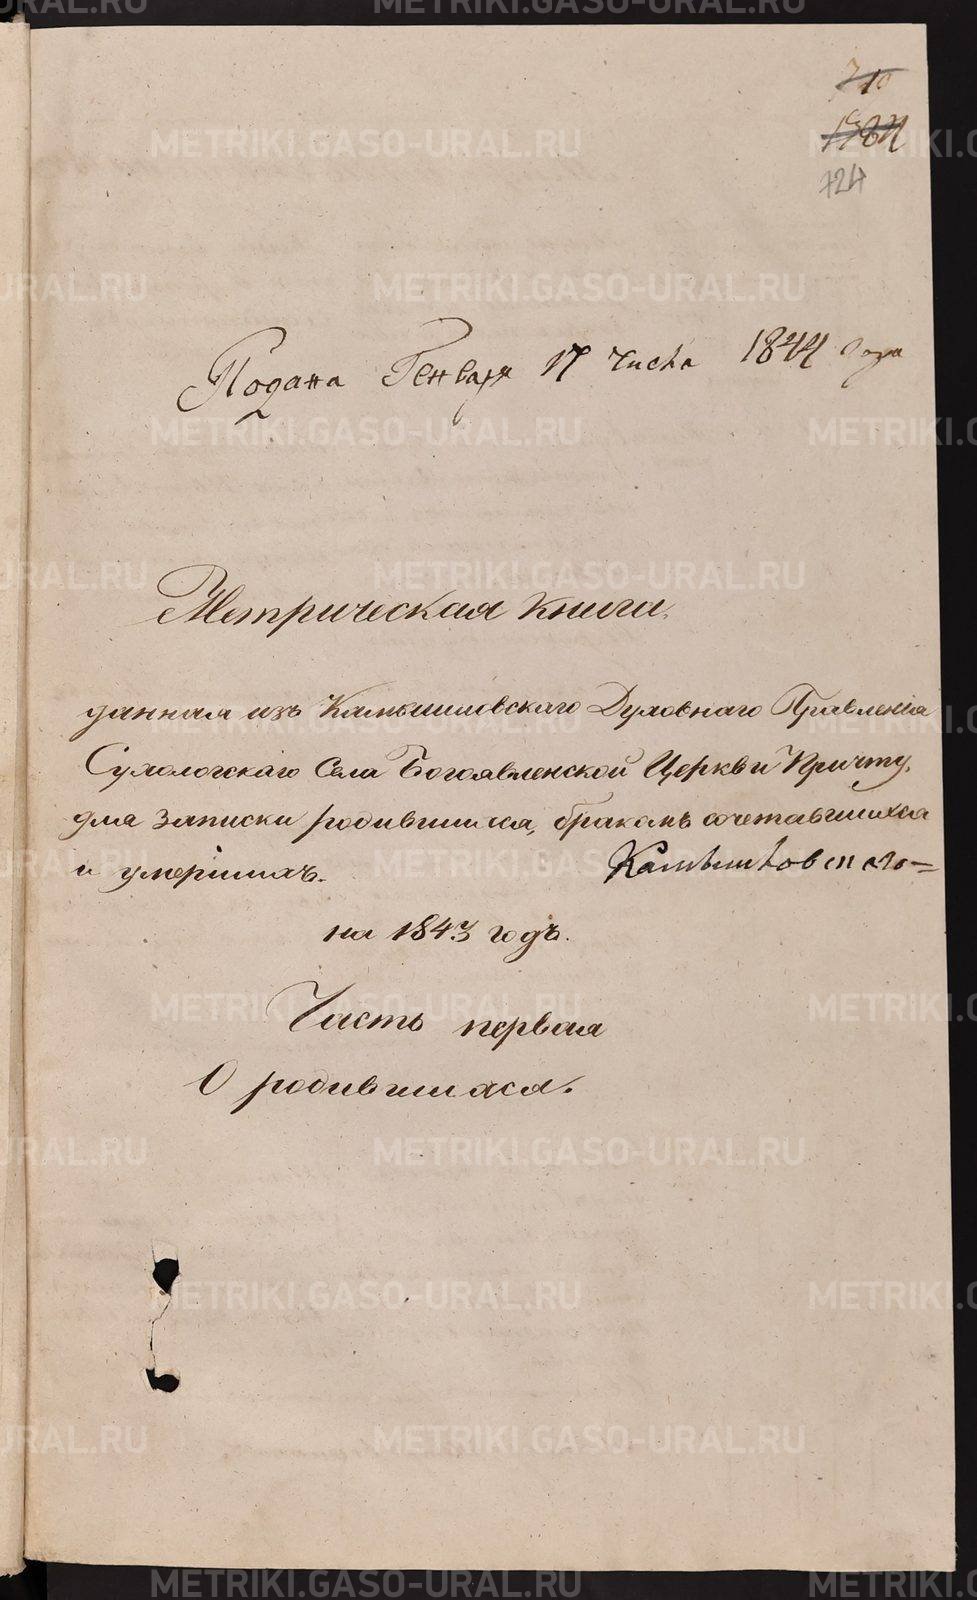 710
724
Подана Генваря 17 числа 1844 года
Метрическая книга,
данная изъ Камышловскаго Духовнаго Правленія
Сухоложскаго Села Богоявленской Церкви Причту,
для записки родившихся, бракомъ сочетавшихся
и умершихъ.
на 1843 годъ.
Часть первая
О родившихся.
METRIKI.GASO-URAL.RU